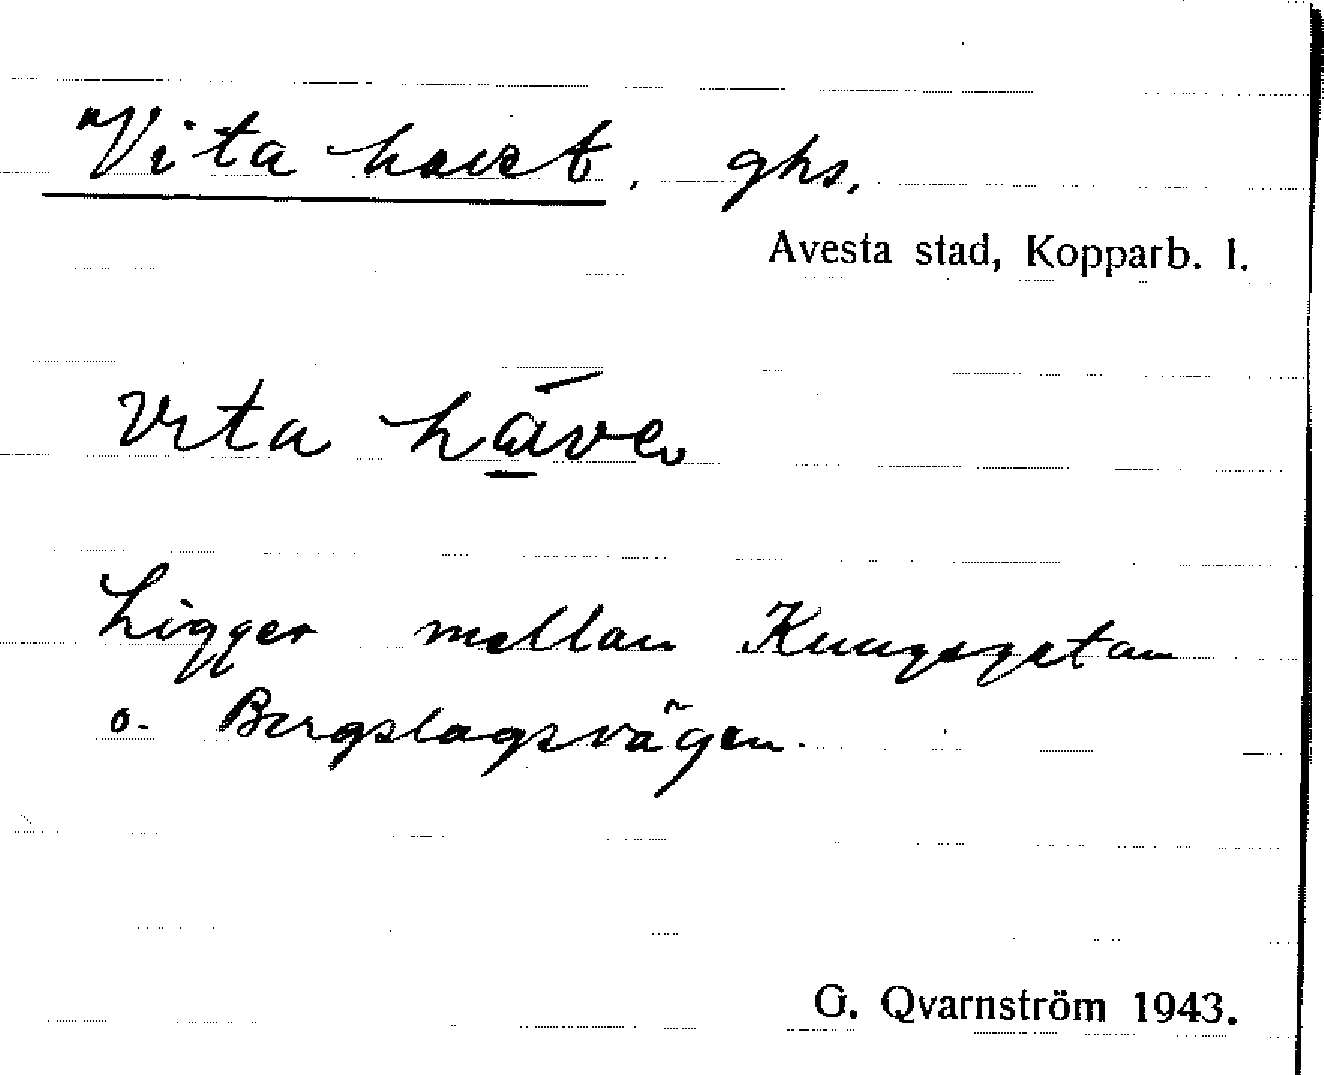 Vita havet, ghs.
Avesta stad, Kopparb. l.
vita hāve
Ligger mellan Kungsgatan
o. Bergslagsvägen.
G. Qvarnström 1943.